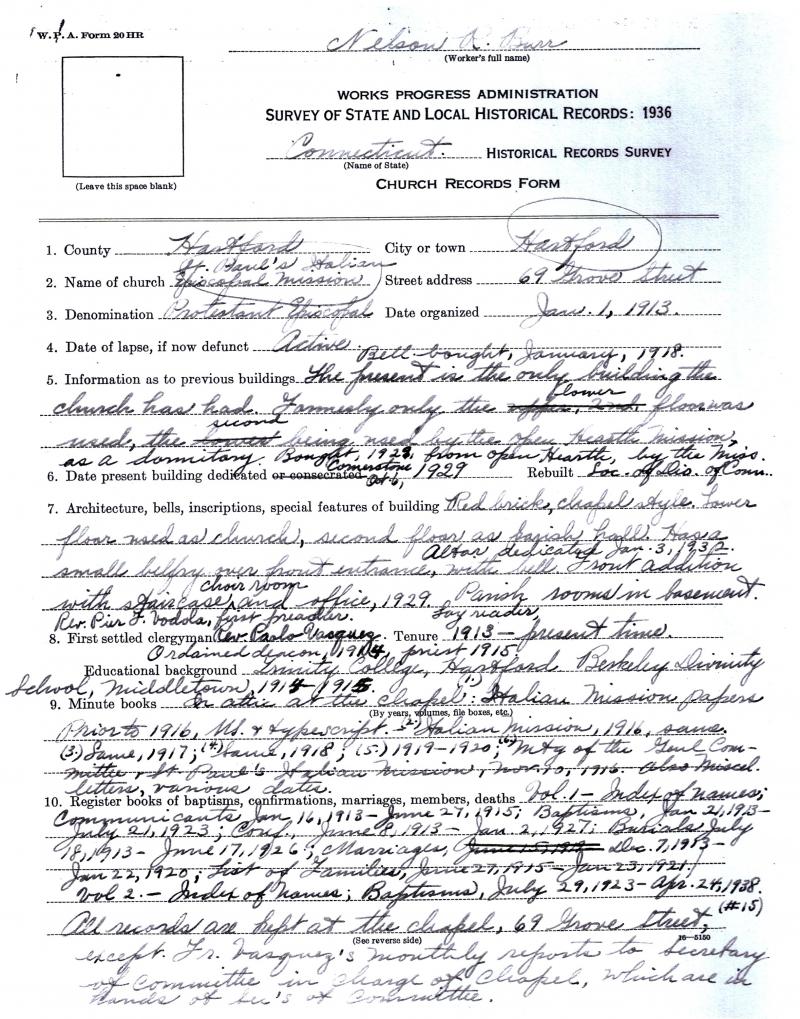 W.P.A. Form 20 HR
Nelson R. Burr
(Worker's full name)
WORKS PROGRESS ADMINISTRATION
SURVEY OF STATE AND LOCAL HISTORICAL RECORDS: 1936
Connecticut. HISTORICAL RECORDS SURVEY
(Name of State)
(Leave this space blank)
CHURCH RECORDS FORM
1. County Hartford City or town Hartford
St. Paul's Italian
2. Name of church Episcopal Mission Street address 69 Grove Street
3. Denomination Protestant Episcopal Date organized Jan. 1, 1913.
4. Date of lapse, if now defunct Active.
Bell bought, January, 1918.
5. Information as to previous buildings The present is the only building the
church has had. Formerly only the upper, 2nd, lower floor was
used, the lowest second being used by the Open Hearth Mission,
as a dormitory. Bought, 1923, from Open Hearth, by the Miss.
6. Date present building dedicated or consecrated Cornerstone Oct. 6, 1929 Rebuilt Soc. of Dio. of Conn.
7. Architecture, bells, inscriptions, special features of building Red brick, chapel style. Lower
floor used as church, second floor as parish hall. Has a
Altar dedicated Jan. 3, 1932.
small belfry over front entrance, with bell. Front addition
with staircase, choir room and office, 1929. Parish rooms in basement.
Rev. Pier F. Vodola, first preacher. Lay reader,
8. First settled clergyman Rev. Paolo Vasquez. Tenure 1913 – present time.
Ordained deacon, 1914, priest 1915.
Educational background Trinity College, Hartford Berkeley Divinity
School, Middletown, 1914-1915.
9. Minute books In attic at the chapel: (1) Italian Mission papers
(By years, volumes, file boxes, etc.)
Prior to 1916, MS. & typescript. (2) Italian Mission, 1916, same.
(3) Same, 1917; (4) Same, 1918; (5) 1919-1920; (6) Mtg of the Genl Com-
mittee, St. Paul's Italian Mission, Nov. 10, 1916. Also Miscel.
letters, various dates.
10. Register books of baptisms, confirmations, marriages, members, deaths Vol. 1 - Index of names;
Communicants Jan 16, 1913 - June 27, 1915; Baptisms, Jan 21, 1913-
July 21, 1923; Conf., June 8, 1913 - Jan. 2, 1927; Burials July
18, 1913 - June 17, 1926; Marriages, Dec. 7, 1913 -
Jan 22, 1920; List of Families, June 27, 1915 - Jan 23, 1921.
Vol 2. - Index of Names; Baptisms, July 29, 1923 - Apr. 24, 1938.
(#15)
All records are kept at the chapel, 69 Grove Street,
(See reverse side)
16-5150
except Fr. Vasquez's monthly reports to Secretary
of Committee in charge of Chapel, which are in
hands of Sec's of Committee.